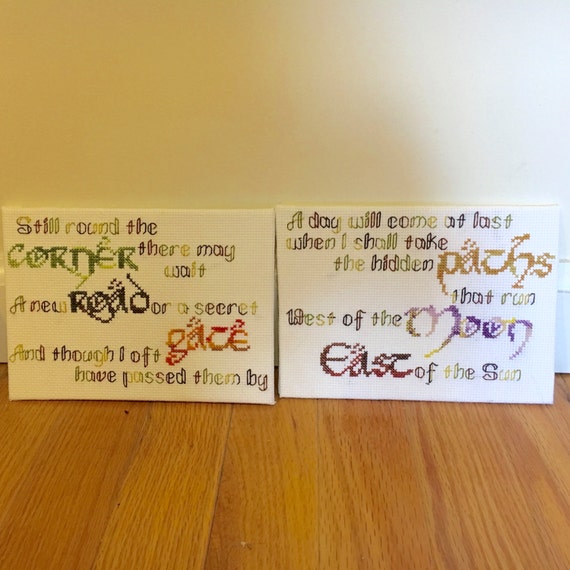 Still round the
CORNER there may
wait
A new ROAD or a secret
GATE
And though I oft
have passed them by
A day will come at last
when I shall take
the hidden PATHS
that run
West of the MOON
EAST of the Sun